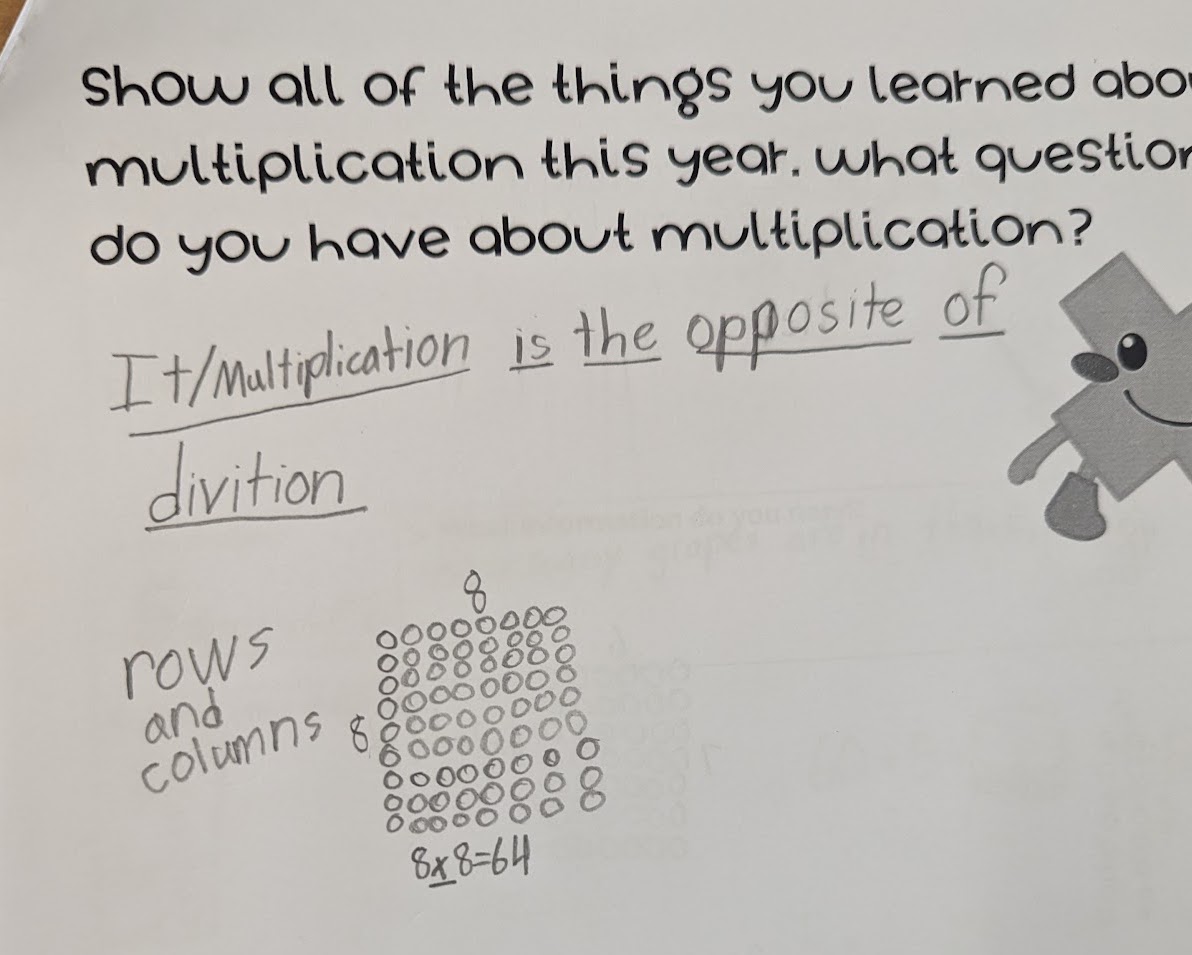 Show all of the things you learned abo
multiplication this year. What question
do you have about multiplication?
It/Multiplication is the opposite of
divition
8
rows
and
columns 8
8x8=64